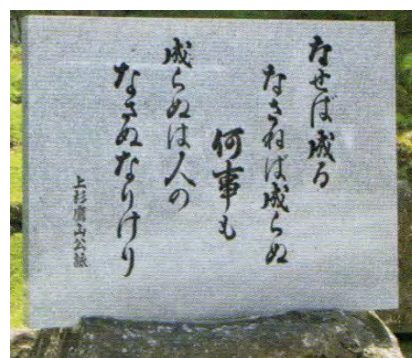 なせば成る
なさねば成らぬ
何事も
成らぬは人の
なさぬなりけり
上杉鷹山公旅